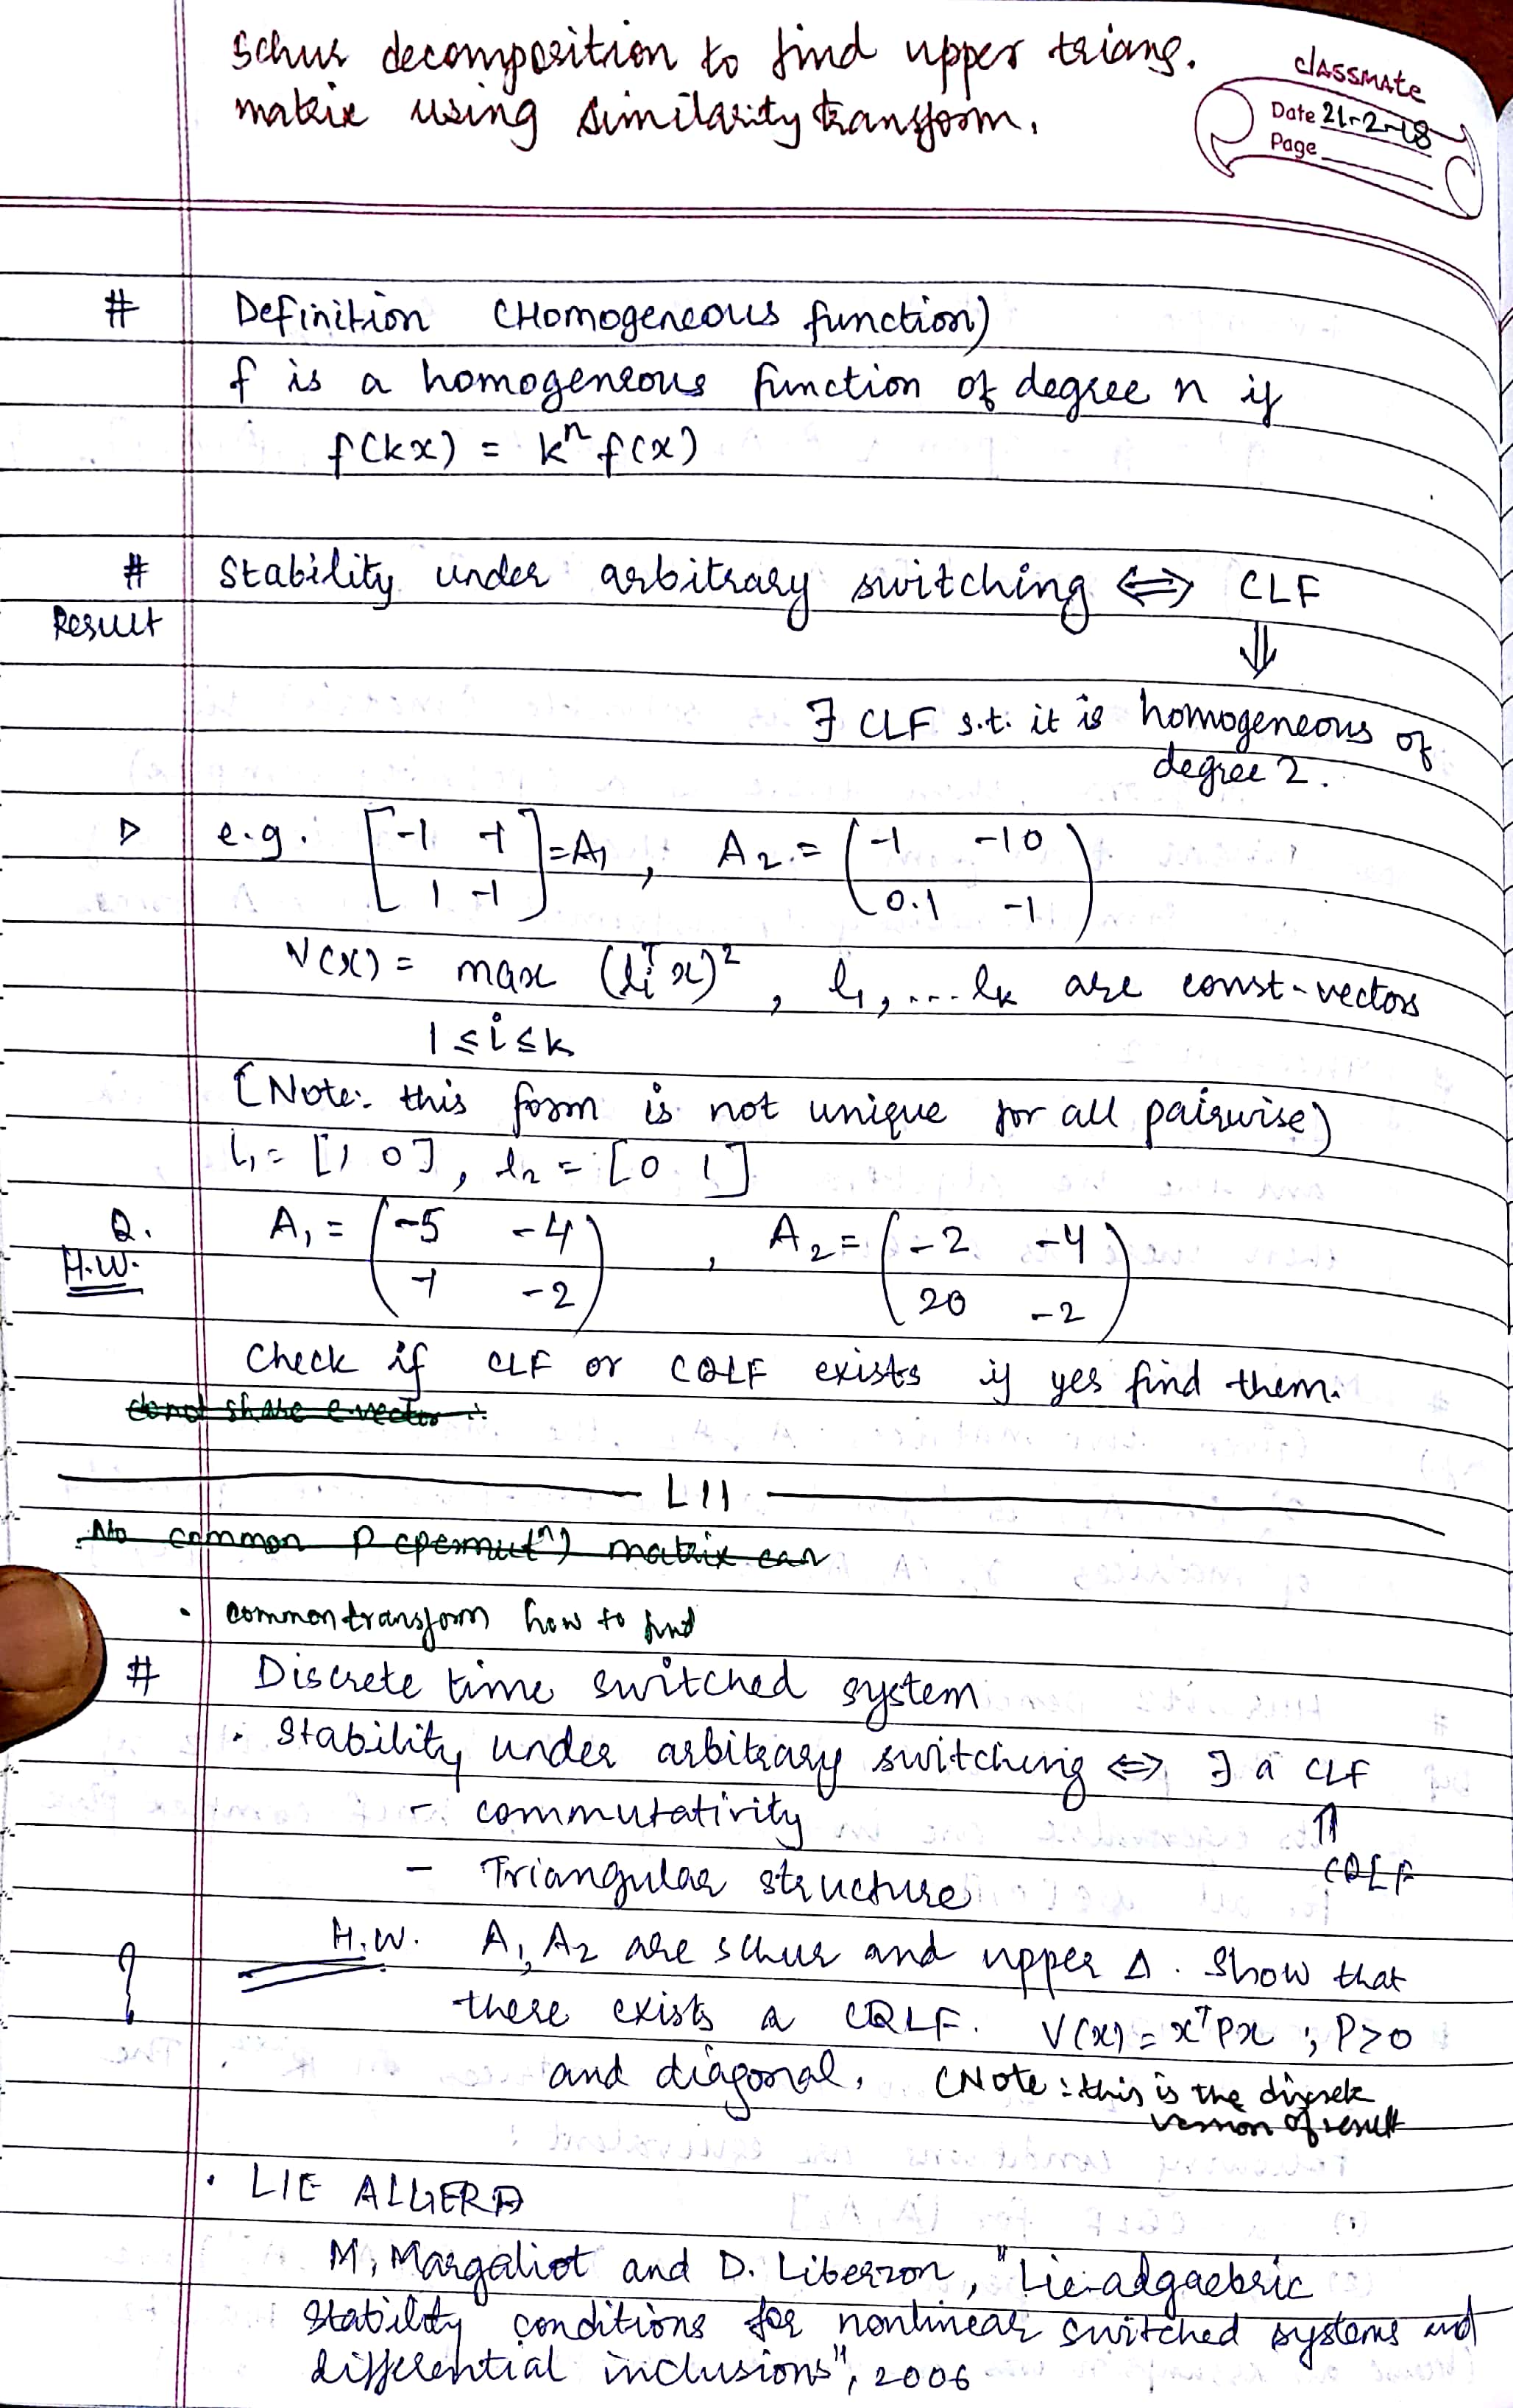 Schur decomposition to find upper triang.
matrix using similarity transform.
classmate
Date 21-2-18
Page
# Definition (Homogeneous function)
f is a homogeneous function of degree n if
f(kx) = kⁿ f(x)
# Stability under arbitrary switching ⟺ CLF
Result
⇓
∃ CLF s.t. it is homogeneous of
degree 2.
▷ e.g. [-1 -1; 1 -1] = A₁, A₂ = (-1 -10; 0.1 -1)
V(x) = max (lᵢᵀx)², l₁, ... lk are const-vectors
1≤i≤k
(Note: this form is not unique for all pairwise)
l₁ = [1 0], l₂ = [0 1]
Q. A₁ = (-5 -4; -1 -2), A₂ = (-2 -4; 20 -2)
H.W.
Check if CLF or CQLF exists if yes find them.
donot share e-vector
L11
No common P (permutⁿ) matrix can
• common transform how to find
# Discrete time switched system
• Stability under arbitrary switching ⟺ ∃ a CLF
- commutativity ⇑
- Triangular structure CQLF
H.W. A₁, A₂ are schur and upper Δ. Show that
there exists a CQLF. V(x) = xᵀPx ; P>0
and diagonal. (Note: this is the discrete
version of result
• LIE ALGERA
M. Margaliot and D. Liberzon, "Lie-adgaebric
stability conditions for nonlinear switched systems and
differential inclusions", 2006